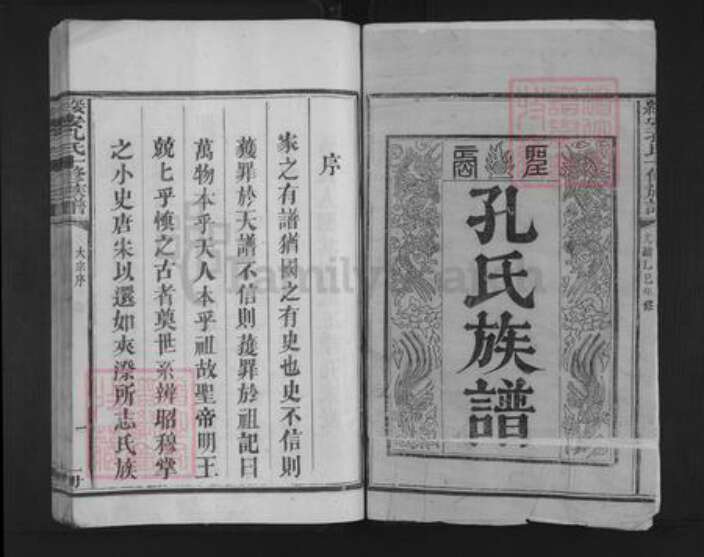 孔氏族譜
序
家之有譜猶國之有史也史不信則
獲罪於天譜不信則獲罪於祖記曰
萬物本乎天人本乎祖故聖帝明王
兢上乎慎之古者奠世系辨昭穆掌
之小史唐宋以還如夾漈所志氏族
大宗序
一